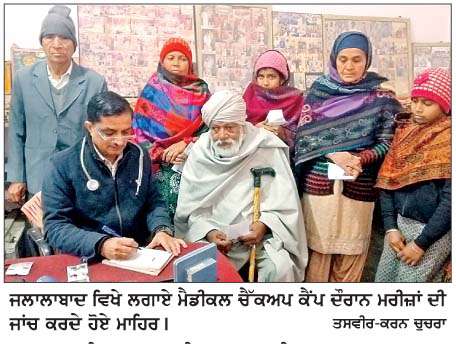 ਜਲਾਲਾਬਾਦ ਵਿਖੇ ਲਗਾਏ ਮੈਡੀਕਲ ਚੈੱਕਅਪ ਕੈਂਪ ਦੌਰਾਨ ਮਰੀਜ਼ਾਂ ਦੀ
ਜਾਂਚ ਕਰਦੇ ਹੋਏ ਮਾਹਿਰ। ਤਸਵੀਰ-ਕਰਨ ਚੁਚਰਾ